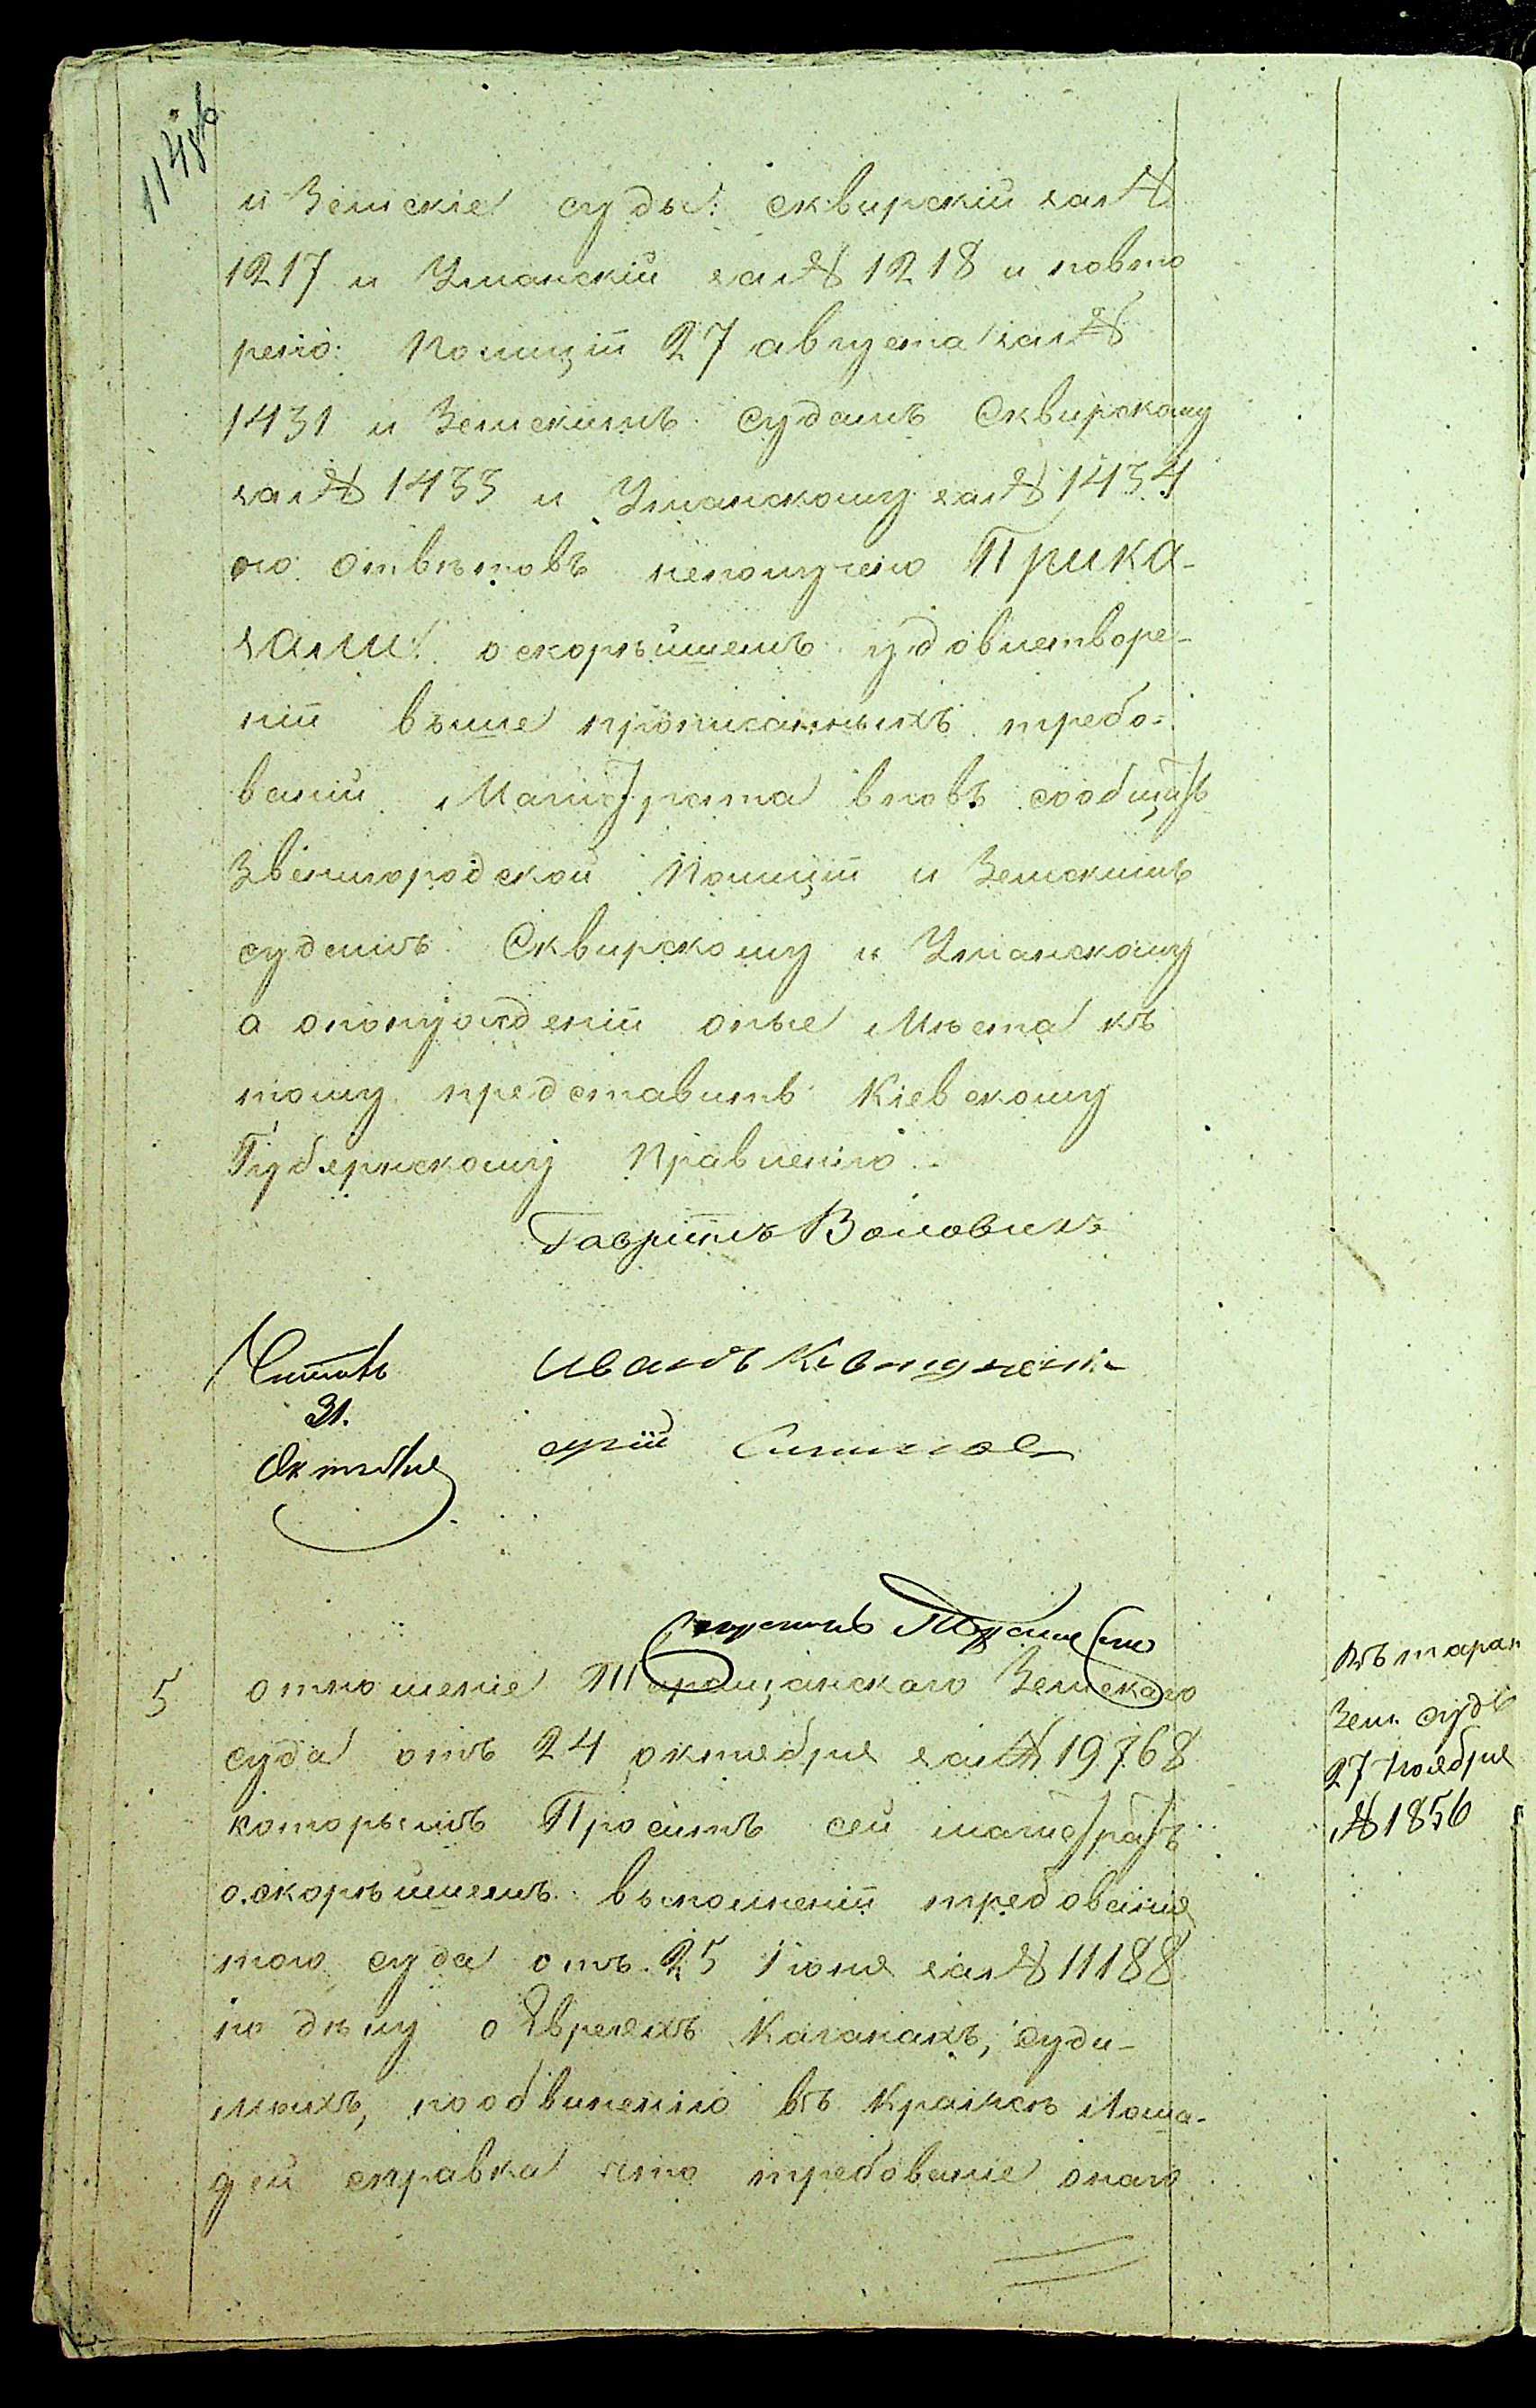 и Земскіе суды: сквирскій за №
1217 и Уманскій за № 1218 и повто
рено: Полиціи 27 августа за №
1431 и Земскимъ судамъ Сквирскому
за № 1433 и Уманскому за № 1434
но отвѣтовъ неполучено Прика-
зали: о скорѣйшемъ удовлетворе-
ніи выше прописанныхъ требо-
ваній Магистрата вновь сообщить
Звенигородской Полиціи и Земскимъ
судамъ Сквирскому и Уманскому
а опонужденіи оные Мѣста къ
тому представить Кіевскому
Губернскому Правленію.
Гаврiилъ Воловикъ
Читалъ
31.
Октября
Иванъ
5
отношеніе Таращанскаго Земскаго
суда отъ 24 октября за № 19768
которымъ Проситъ сей магистратъ
о скорѣйшемъ выполненіи требованія
того суда отъ 25 Іюня за № 11188
по дѣлу о Евреяхъ Каганахъ, суди-
мыхъ, по обвиненію въ кражѣ лоша-
дей справка что требованіе онаго
Въ таращ
Зем. судъ
27 Ноября
№ 1856